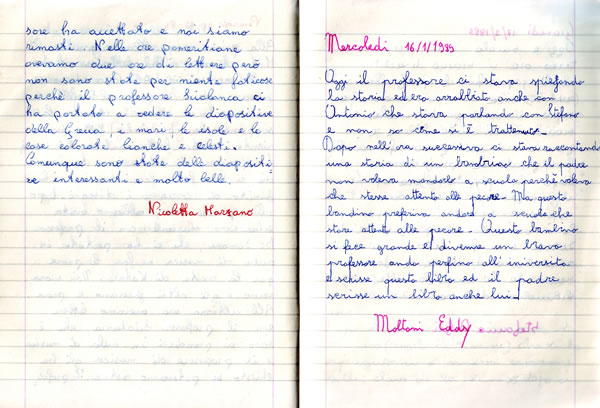 sore ha accettato e noi siamo
rimasti. Nelle ore pomeridiane
avevamo due ore di lettere però
non sono state per niente faticose
perchè il professore ci
ha portato a vedere le diapositive
della Grecia, i mari, le isole e le
case colorate bianche e celesti.
Comunque sono state delle diapositi=
ve interessanti e molto belle.
Nicoletta Marzano
Mercoledì 16/1/1989
Oggi il professore ci stava spiegando
la storia ed era arrabbiato anche con
Antonio che stava parlando con Stefano
e non so come si è trattenuto.
Dopo nell'ora successiva ci stava raccontando
una storia di un bambino che il padre
non voleva mandarlo a scuola perchè voleva
che stesse attento alle pecore. Ma questo
bambino preferiva andare a scuola che
stare attento alle pecore. Questo bambino
si fece grande e divenne un bravo
professore andò perfino all'università
e scrisse questo libro ed il padre
scrisse un libro anche lui.
Moltoni Eddy